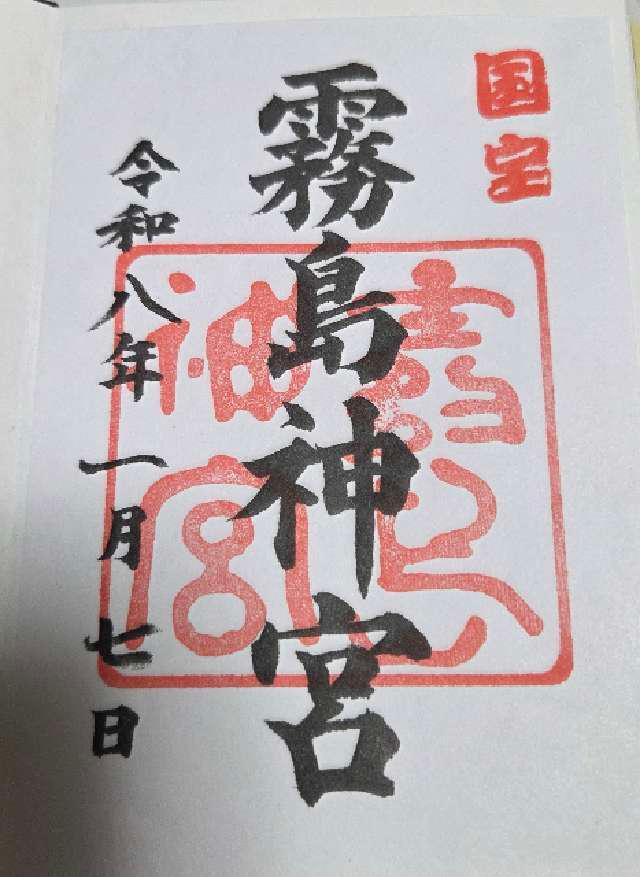 国宝
霧島神宮
令和八年一月七日